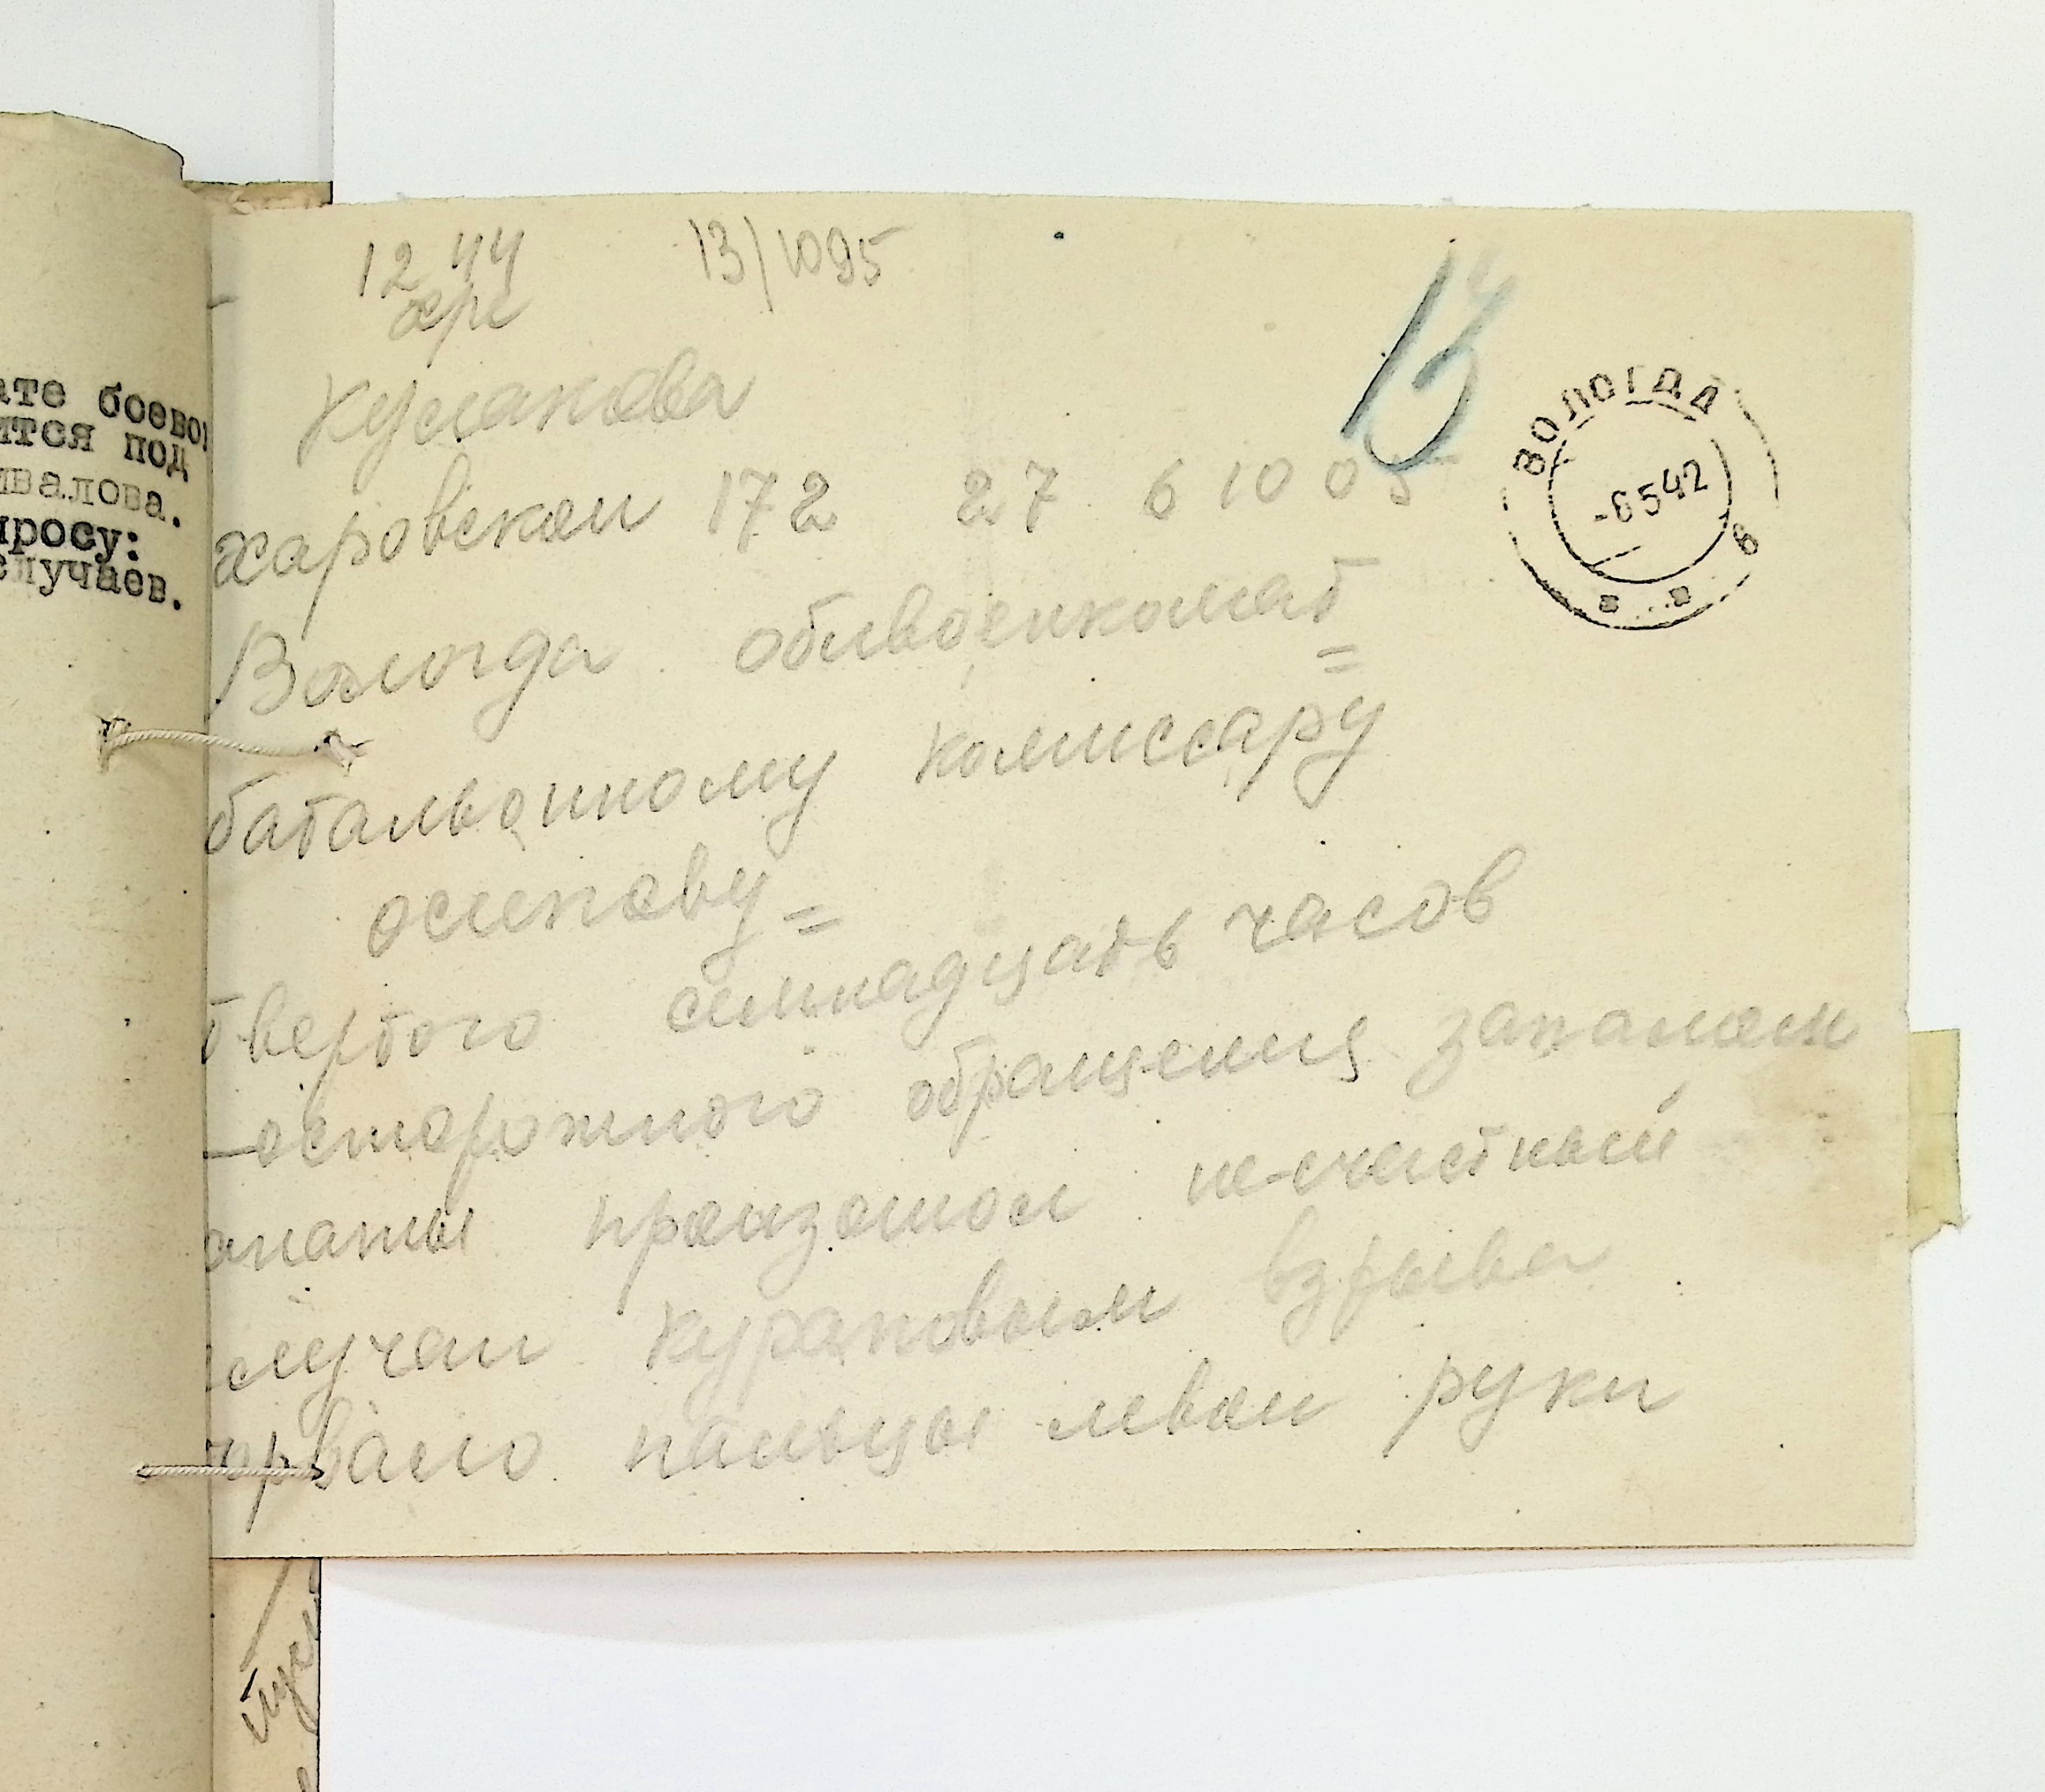 ате боево
ится под
ивалова.
просу:
случаев.
12 44 13/1095
Кулакова
харовской 172 27 6 10 05
13
ВОЛОГДА
-6542
в
Вологда облвоенкомат =
батальонному комиссару
осипову =
твертого семнадцать часов
-осторожного обращения запалом
анаты произошол несчастный
случаи Кураковым взрыва
торвало пальцы левои руки